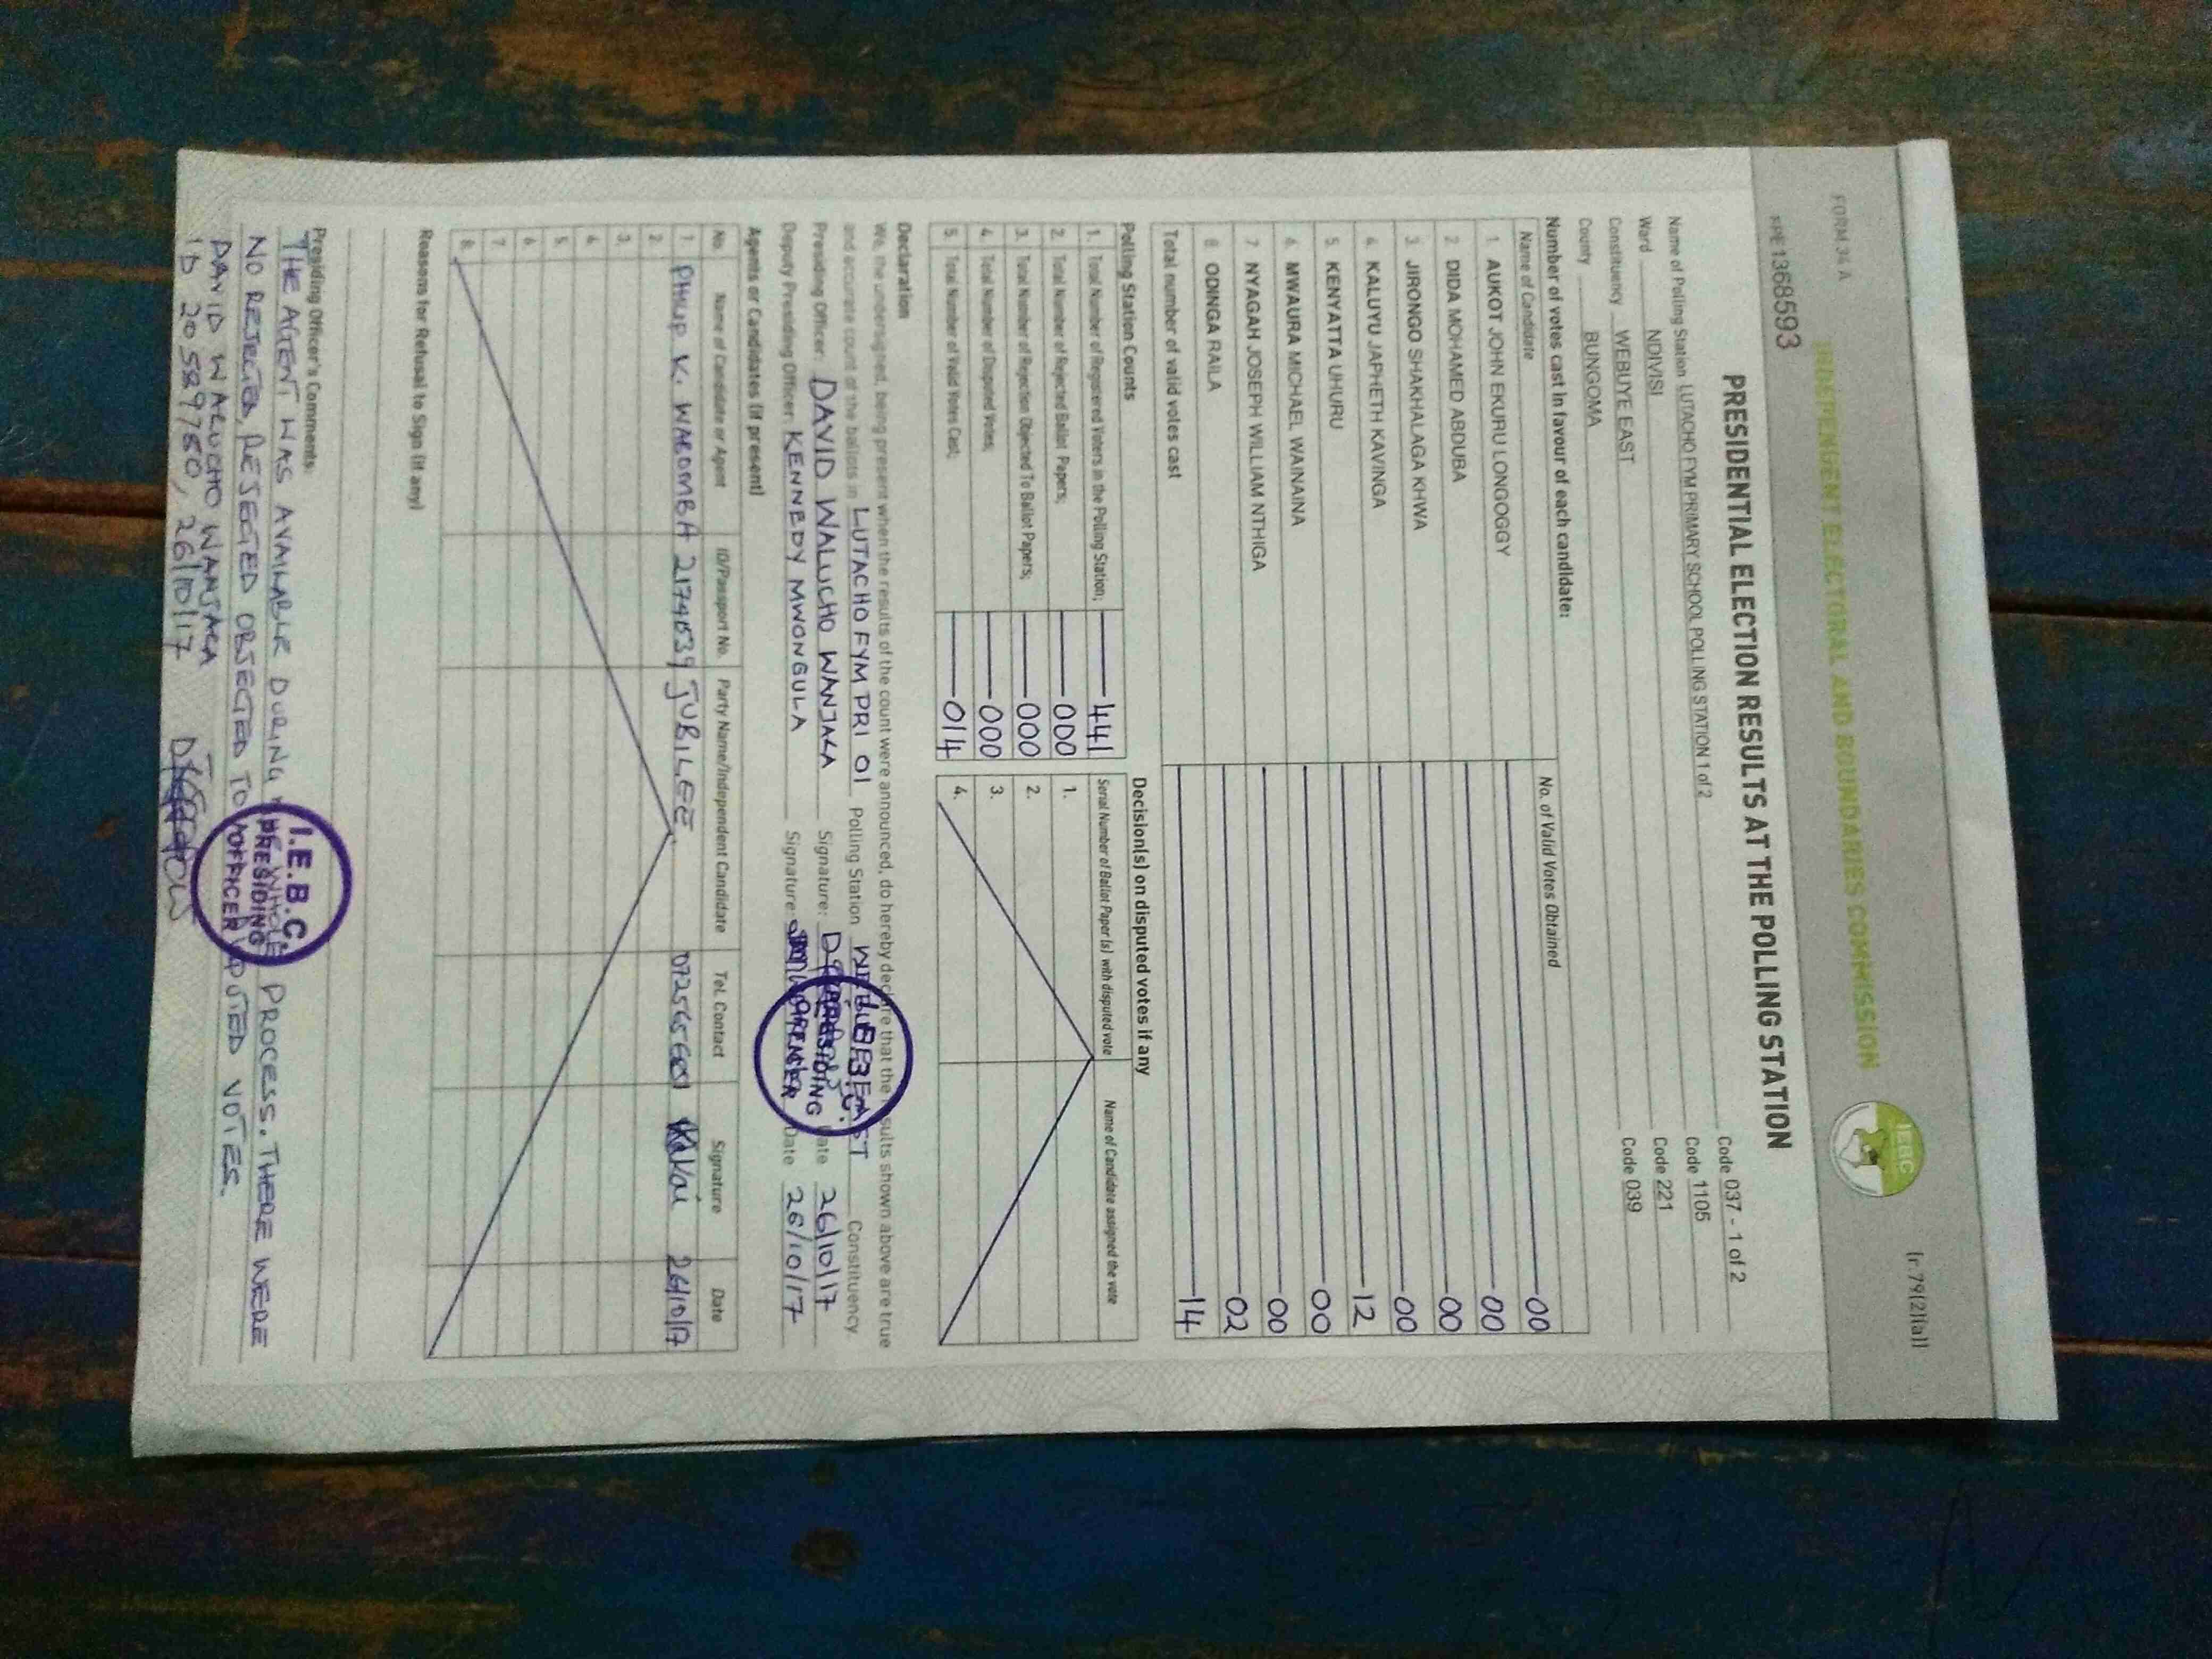 FORM 34 A
[r.79(2)(a)]
INDEPENDENT ELECTORAL AND BOUNDARIES COMMISSION
IEBC
1368593
PRESIDENTIAL ELECTION RESULTS AT THE POLLING STATION
Name of Polling Station LUTACHO FYM PRIMARY SCHOOL POLLING STATION 1 of 2 Code 037 - 1 of 2
Ward NDIVISI Code 1105
Constituency WEBUYE EAST Code 221
County BUNGOMA Code 039
Number of votes cast in favour of each candidate:
Name of Candidate No. of Valid Votes Obtained
1. AUKOT JOHN EKURU LONGOGGY 00
2. DIDA MOHAMED ABDUBA 00
3. JIRONGO SHAKHALAGA KHWA 00
4. KALUYU JAPHETH KAVINGA 00
5. KENYATTA UHURU 12
6. MWAURA MICHAEL WAINAINA 00
7. NYAGAH JOSEPH WILLIAM NTHIGA 00
8. ODINGA RAILA 02
Total number of valid votes cast 14
Polling Station Counts
1. Total Number of Registered Voters in the Polling Station; 441
2. Total Number of Rejected Ballot Papers; 000
3. Total Number of Rejection Objected To Ballot Papers; 000
4. Total Number of Disputed Votes; 000
5. Total Number of Valid Votes Cast; 014
Decision(s) on disputed votes if any
Serial Number of Ballot Paper (s) with disputed vote Name of Candidate assigned the vote
1.
2.
3.
4.
Declaration
We, the undersigned, being present when the results of the count were announced, do hereby declare that the results shown above are true
and accurate count of the ballots in LUTACHO FYM PRI 01 Polling Station WEBUYE EAST Constituency
Presiding Officer: DAVID WALUCHO WANJALA Signature: Date 26/10/17
Deputy Presiding Officer: KENNEDY MWONGULA Signature: Date 26/10/17
I.E.B.C. PRESIDING OFFICER
Agents or Candidates (if present)
No. Name of Candidate or Agent ID/Passport No. Party Name/Independent Candidate Tel. Contact Signature Date
1. PHILIP K. JUBILEE Kakai 26/10/17
2.
3.
4.
5.
6.
7.
8.
Reasons for Refusal to Sign (if any)
Presiding Officer's Comments:
THE AGENT WAS AVAILABLE DURING THE WHOLE PROCESS. THERE WERE
NO REJECTED, REJECTED OBJECTED TO DISPUTED VOTES.
DAVID WALUCHO WANJALA
ID 20589780, 26/10/17
I.E.B.C. PRESIDING OFFICER